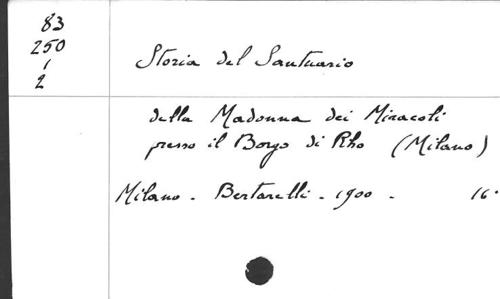 83
250
1
2
Storia del Santuario
della Madonna dei Miracoli
presso il Borgo di Rho (Milano)
Milano - Bertarelli - 1900 - 16°